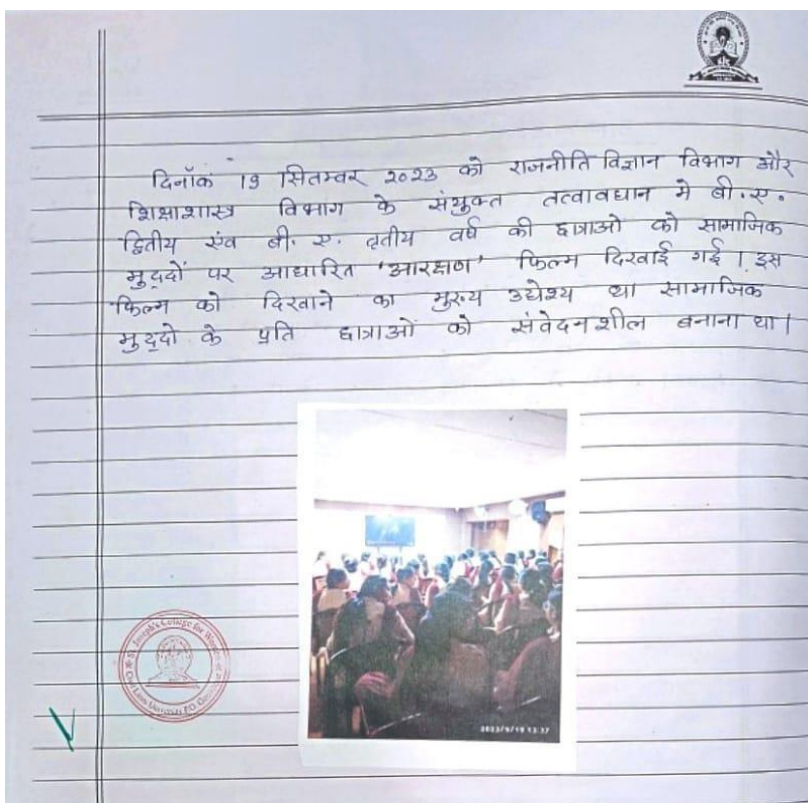 दिनाँक 19 सितम्बर 2023 को राजनीति विज्ञान विभाग और
शिक्षाशास्त्र विभाग के संयुक्त तत्वावधान मे बी.ए.
द्वितीय एंव बी.ए. तृतीय वर्ष की छात्राओ को सामाजिक
मुद्दों पर आधारित 'आरक्षण' फिल्म दिखाई गई। इस
फिल्म को दिखाने का मुख्य उद्येश्य था सामाजिक
मुद्दो के प्रति छात्राओं को संवेदनशील बनाना था।
St. Joseph's College for Women
Civil Lines
2023/9/19 13:37